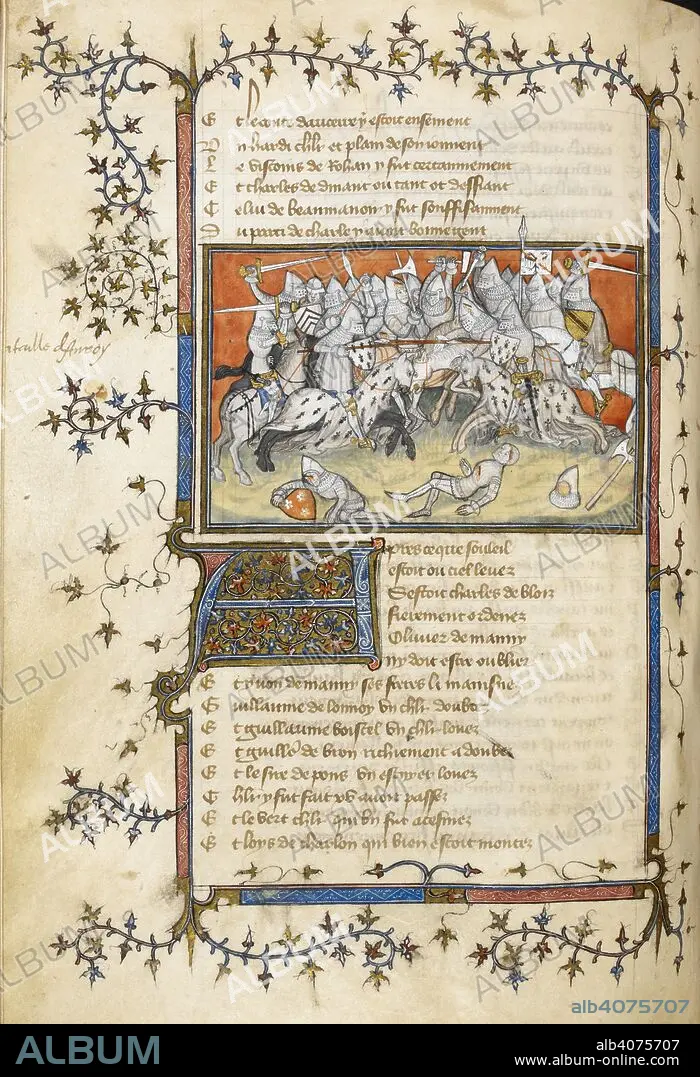 Et le conte daucerre y estoit ensement
Un hardi chlr et plain de son ioment
Le viscoms de Rohan y fut certannement
Et charles de dinant ou tant ot deffiant
Celui de beaumanon y fut souffisanment
Du parti de charle y auoit bonneigent
Apres ce que souleil
estoit ou ciel leuez
Sestoit charles de blois
fierement ordenez
Oliuier de manny
ny doit estre oubliez
Et yuon de manny ses freres li mainsne
Guillaume de lonnoy vn chlr doubtez
Et guillaume boistel vn chlr louez
Et guille de bron richement adoubez
Et le sire de pons vn et louez
Chlr y fut fait auoit passez
Et le vert chlr qui bn fut acesmez
Et loys de chaslon qui bien estoit montez
ALBUM
alb4075707
ALBUM
alb4075707
www.album-online.com